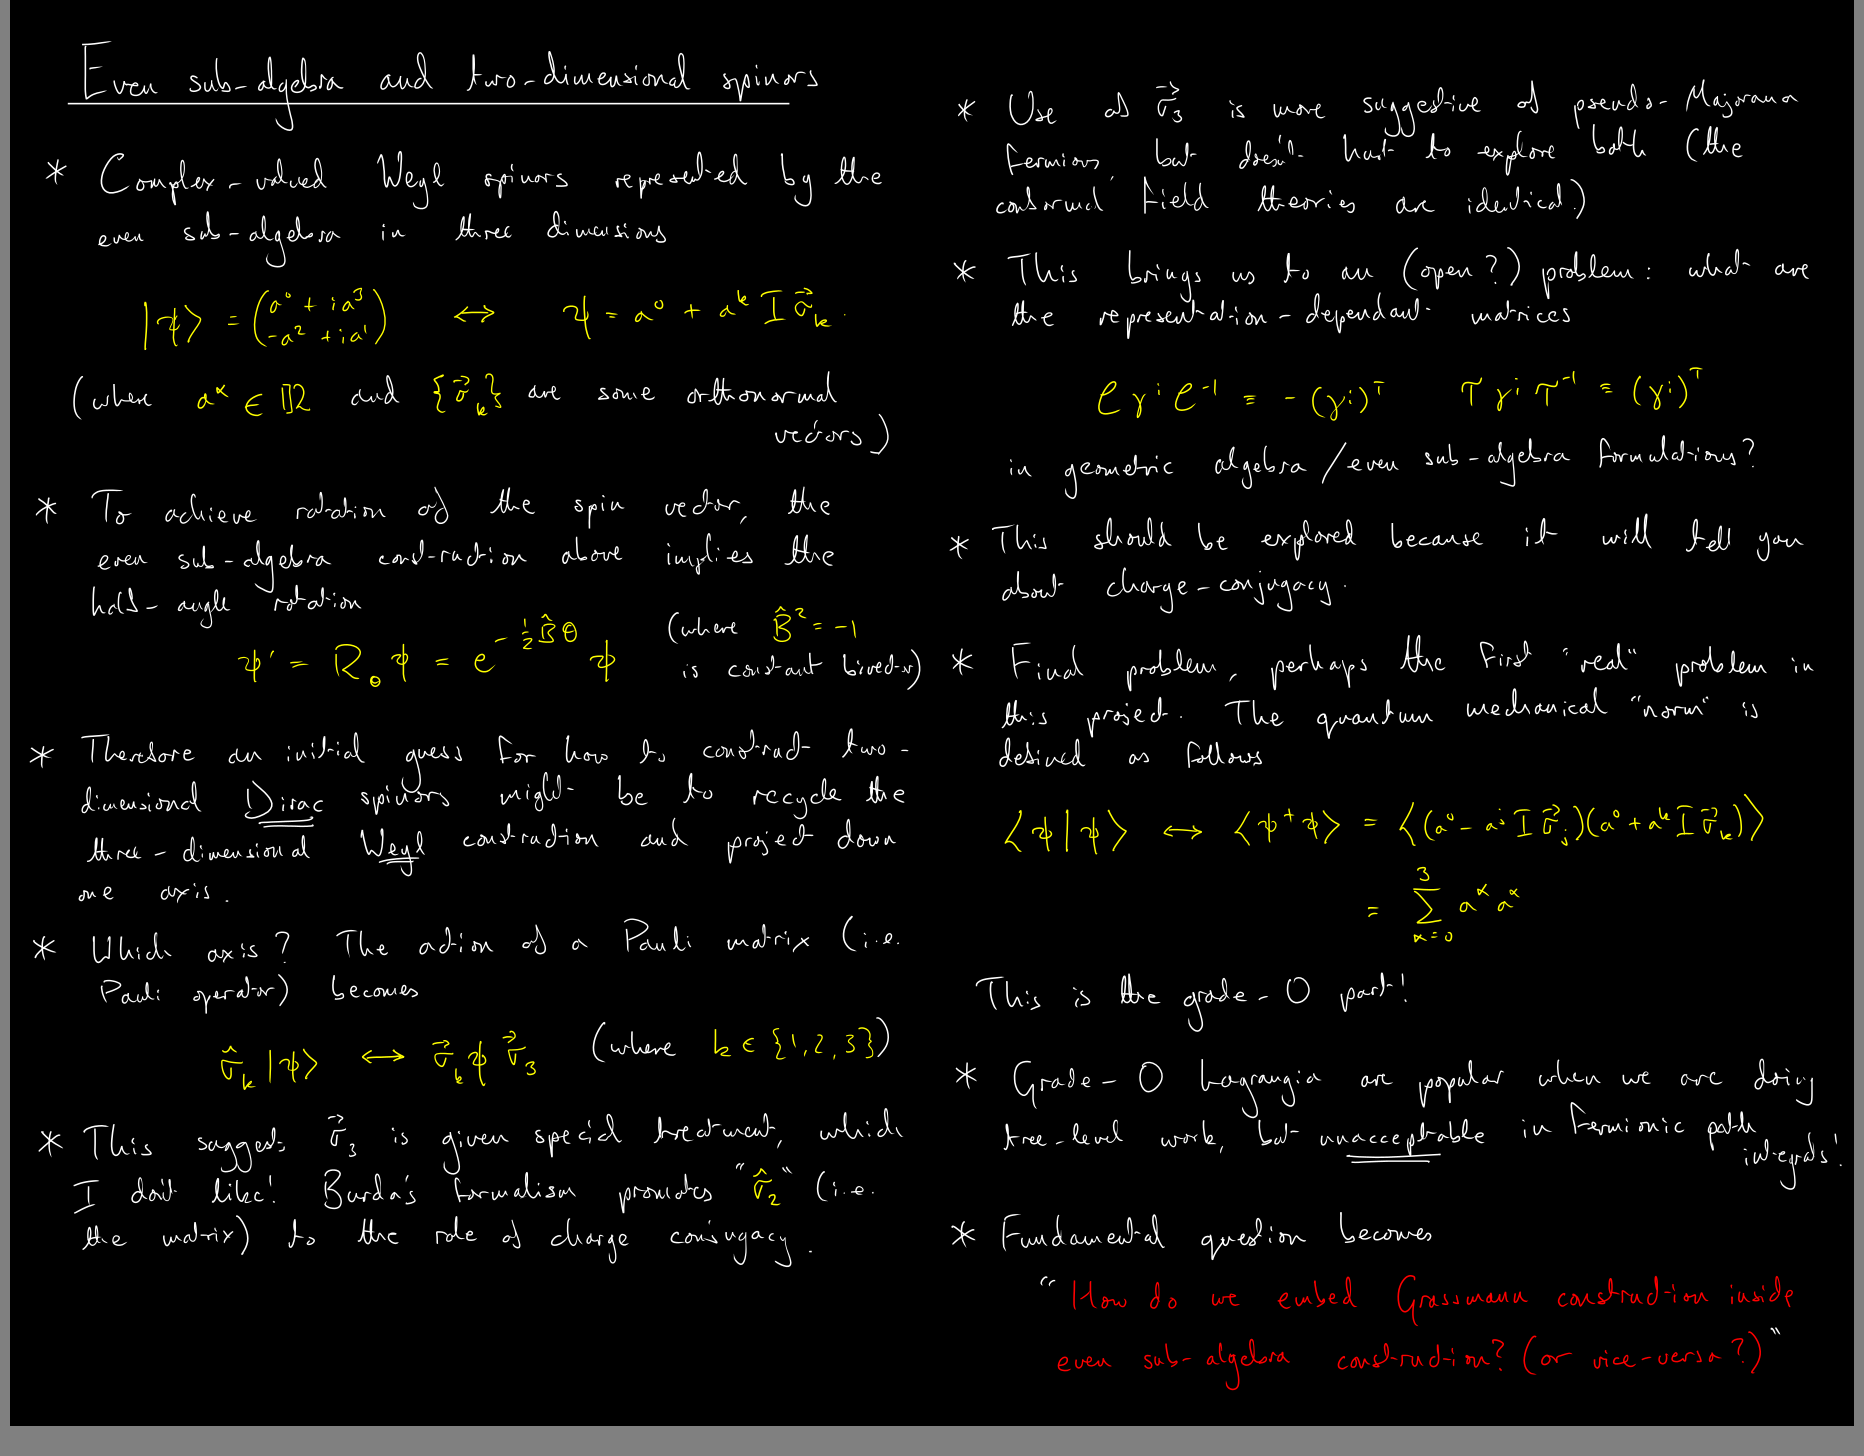 Even sub-algebra and two-dimensional spinors
* Complex-valued Weyl spinors represented by the
even sub-algebra in three dimensions
|ψ⟩ = (a⁰ + ia³
-a² + ia¹) ↔ ψ = a⁰ + aᵏ I σ⃗ₖ.
(where a^α ∈ ℝ and {σ⃗ₖ} are some orthonormal
vectors)
* To achieve rotation of the spin vector, the
even sub-algebra construction above implies the
half-angle rotation
ψ' = R_θ ψ = e^{-½B̂θ} ψ (where B̂² = -1
is constant bivector)
* Therefore an initial guess for how to construct two-
dimensional Dirac spinors might be to recycle the
three-dimensional Weyl construction and project down
one axis.
* Which axis? The action of a Pauli matrix (i.e.
Pauli operator) becomes
σ̂ₖ |ψ⟩ ↔ σ⃗ₖ ψ σ⃗₃ (where k ∈ {1,2,3})
* This suggests σ⃗₃ is given special treatment, which
I don't like! Burda's formalism promotes "σ̂₂" (i.e.
the matrix) to the role of charge conjugacy.
* Use of σ⃗₃ is more suggestive of pseudo-Majorana
fermions, but doesn't hurt to explore both (the
conformal field theories are identical.)
* This brings us to an (open?) problem: what are
the representation-dependant matrices
C γⁱ C⁻¹ = -(γⁱ)ᵀ T γⁱ T⁻¹ = (γⁱ)ᵀ
in geometric algebra/even sub-algebra formulations?
* This should be explored because it will tell you
about charge-conjugacy.
* Final problem, perhaps the first "real" problem in
this project. The quantum mechanical "norm" is
defined as follows
⟨ψ|ψ⟩ ↔ ⟨ψ†ψ⟩ = ⟨(a⁰ - aʲ I σ⃗ⱼ)(a⁰ + aᵏ I σ⃗ₖ)⟩
= Σ_{α=0}^{3} a^α a^α
This is the grade-0 part!
* Grade-0 Lagrangia are popular when we are doing
tree-level work, but unacceptable in fermionic path
integrals!
* Fundamental question becomes
"How do we embed Grassmann construction inside
even sub-algebra construction? (or vice-versa?)"